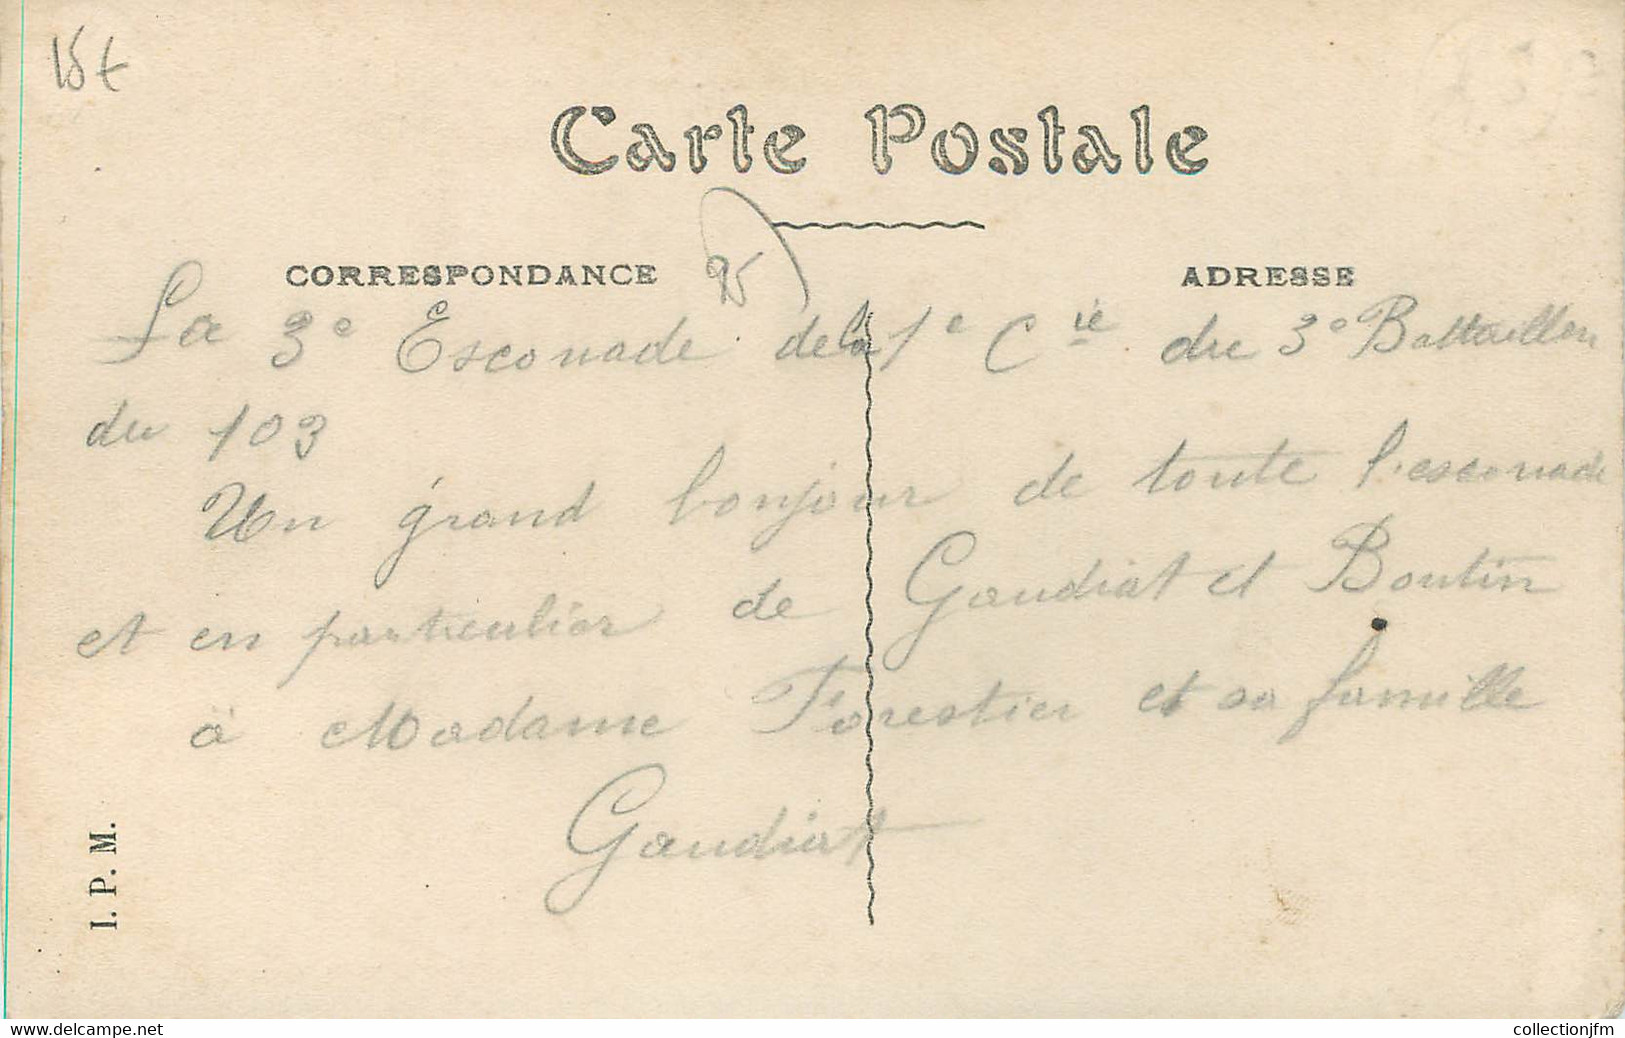 15 €
Carte Postale
CORRESPONDANCE
95
ADRESSE
La 3e Esconade de la 1e Cie du 3e Battaillon
du 103
Un grand bonjour de toute l'esconade
et en particulier de Gaudiat et Boutin
à Madame Forestier et sa famille
Gaudiat
I. P. M.
www.delcampe.net
collectionjfm